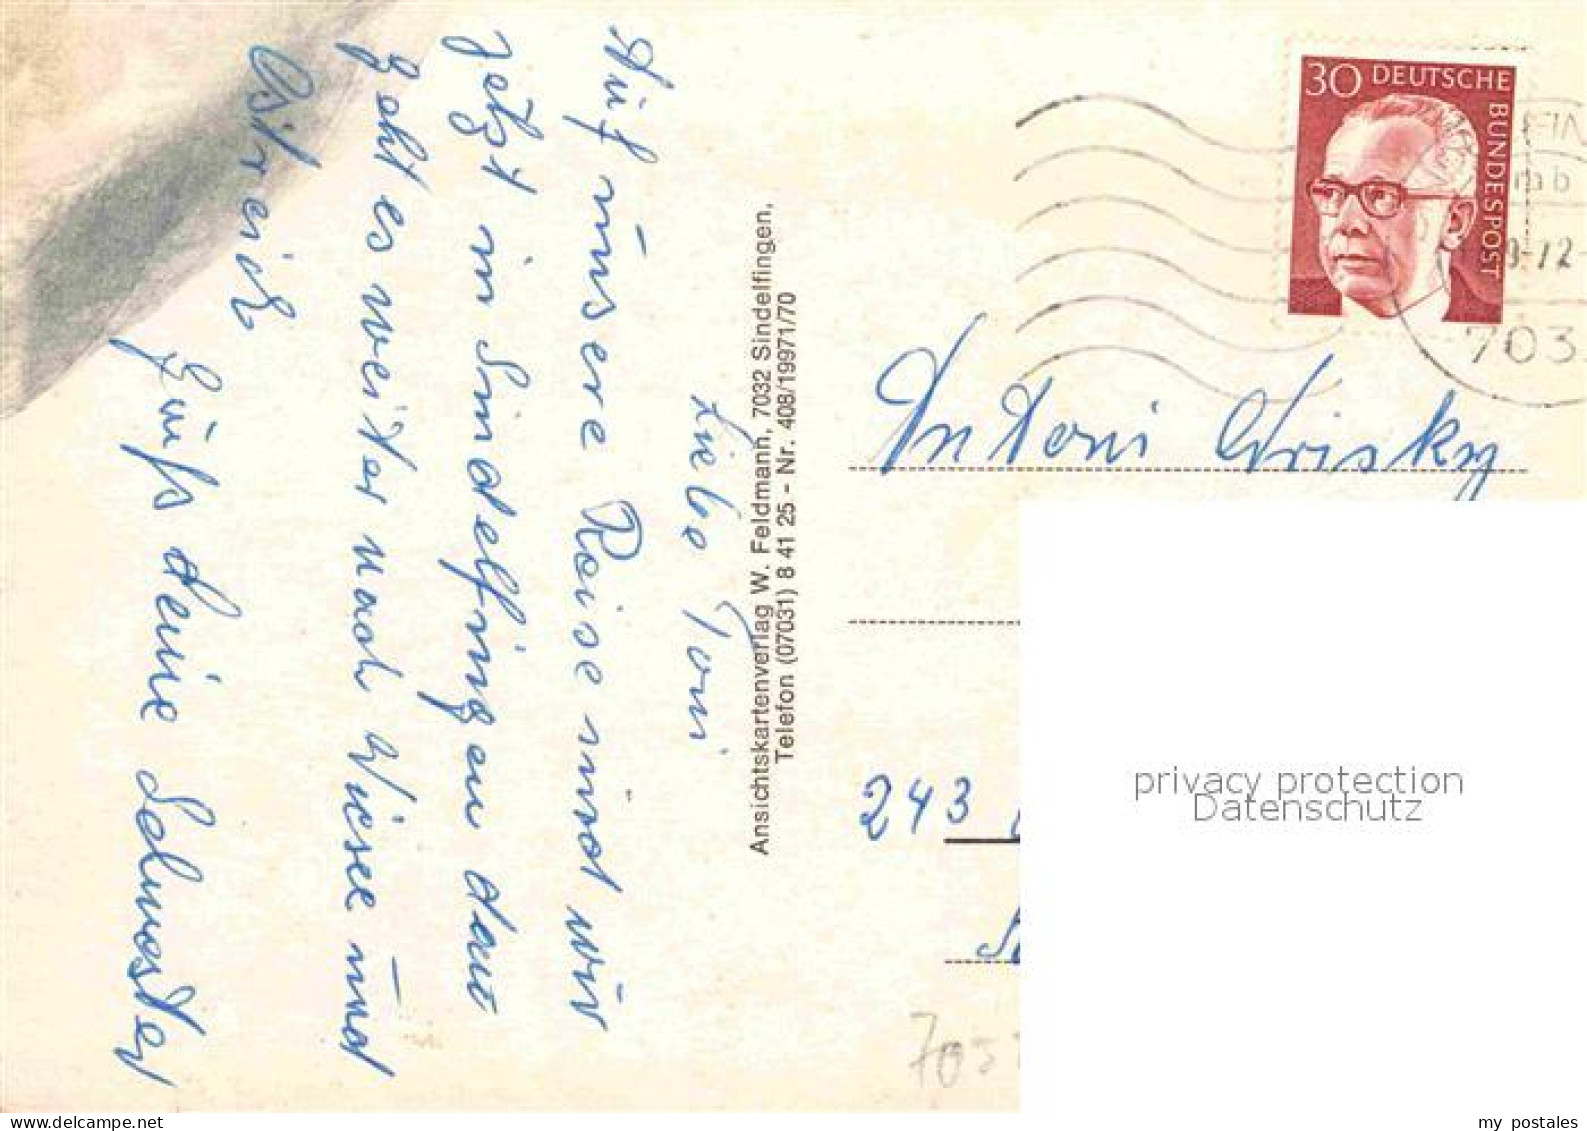 Liebe Toni
Auf unsere Reise sind wir
jetzt in Sindelfingen dan
geht es weiter nach Wiesee und
Östreich
Gruß deine Schwester
Ansichtskartenverlag W. Feldmann, 7032 Sindelfingen,
Telefon (07031) 8 41 25 - Nr. 408/19971/70
30 DEUTSCHE BUNDESPOST
703
Antoni Wrisky
243
privacy protection
Datenschutz
my postales